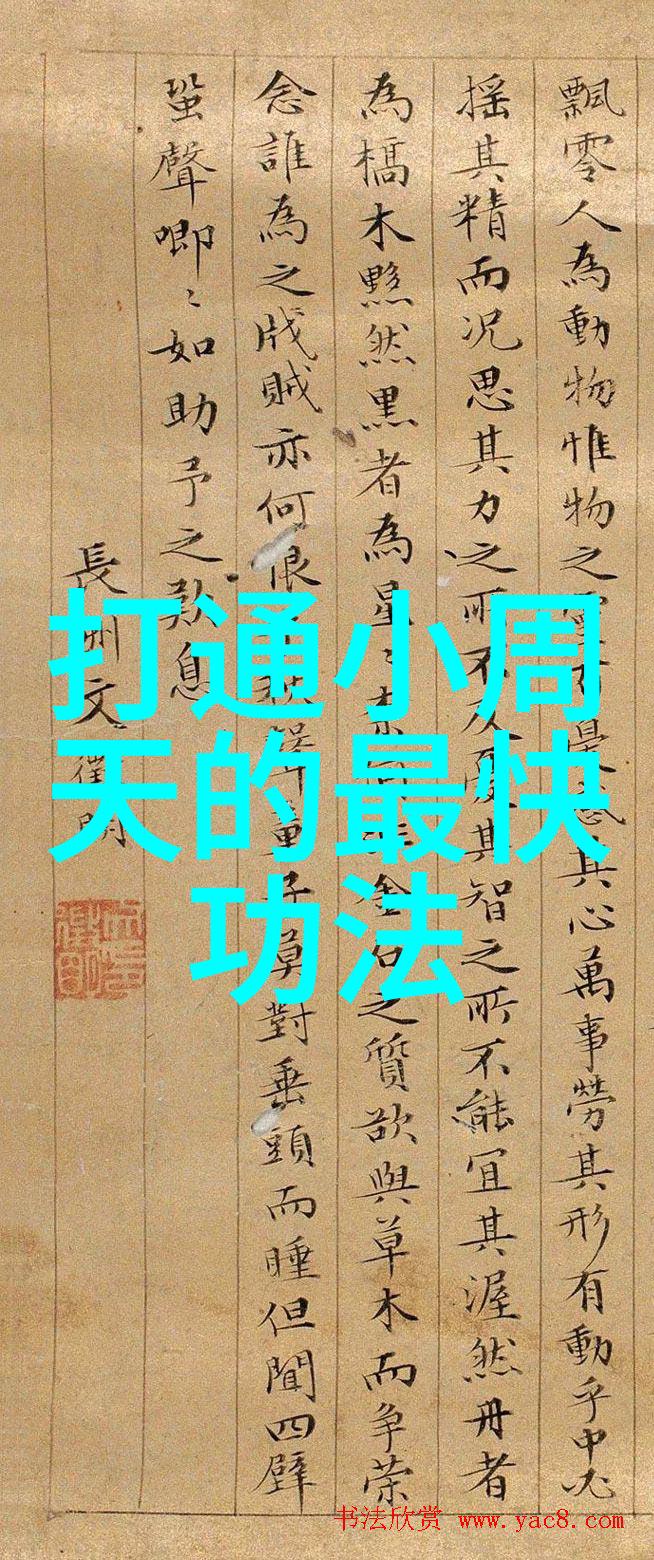 飄零人為動物惟物之感其心萬事勞其形有動乎中必
搖其精而況思其力之所不及憂其智之所不能宜其渥然丹者
為槁木黟然黒者為星〻金石之質欲與草木而爭榮
念誰為之戕賊亦何恨聲童子莫對垂頭而睡但聞四壁
蛩聲唧〻如助予之歎息
長洲文徵明
打通小周
天的最快
功法
书法欣赏 www.yac8.com